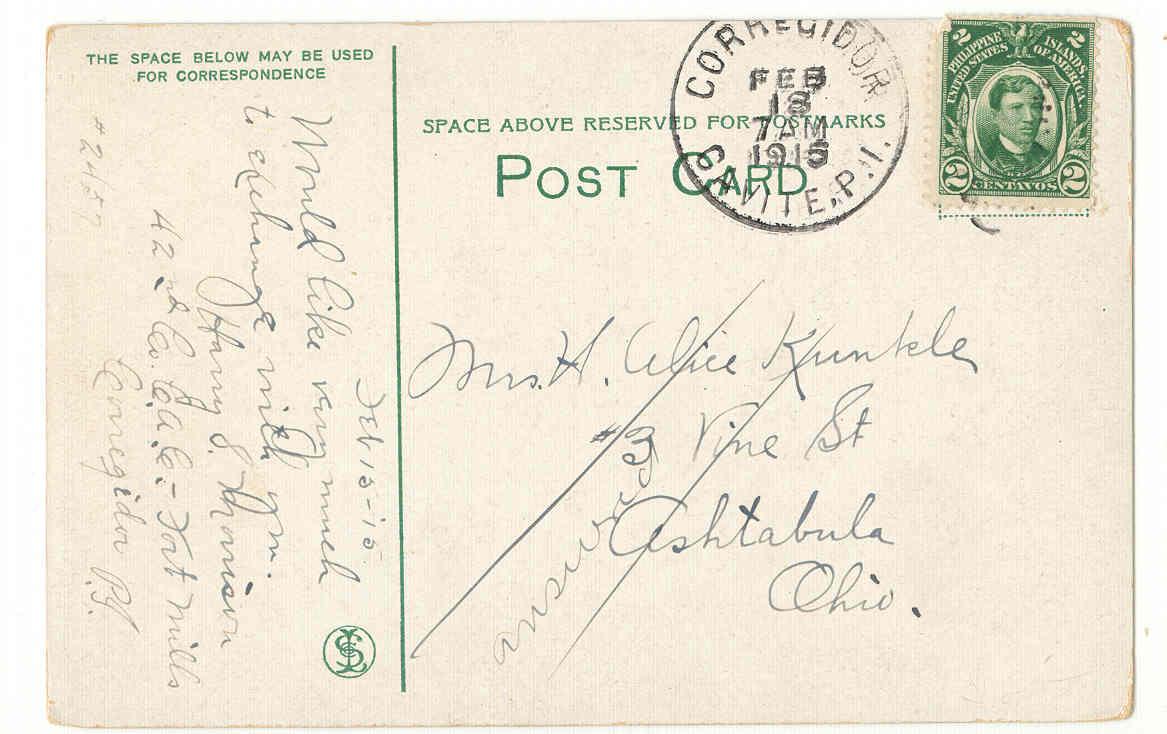 THE SPACE BELOW MAY BE USED
FOR CORRESPONDENCE
SPACE ABOVE RESERVED FOR POSTMARKS
POST CARD
CORREGIDOR
FEB
18
7AM
1915
CAVITE, P.I.
2 2
PHILIPPINE ISLANDS,
UNITED STATES OF AMERICA.
2 CENTAVOS 2
Feb 15-15
Would like very much
to exchange with you.
Harry S. Morrison
42nd Co. C.A.C. - Fort Mills
Corregidor P.I.
#2457
Mrs. H. Alice Kunkle
#3 Vine St
Ashtabula
Ohio.
answered